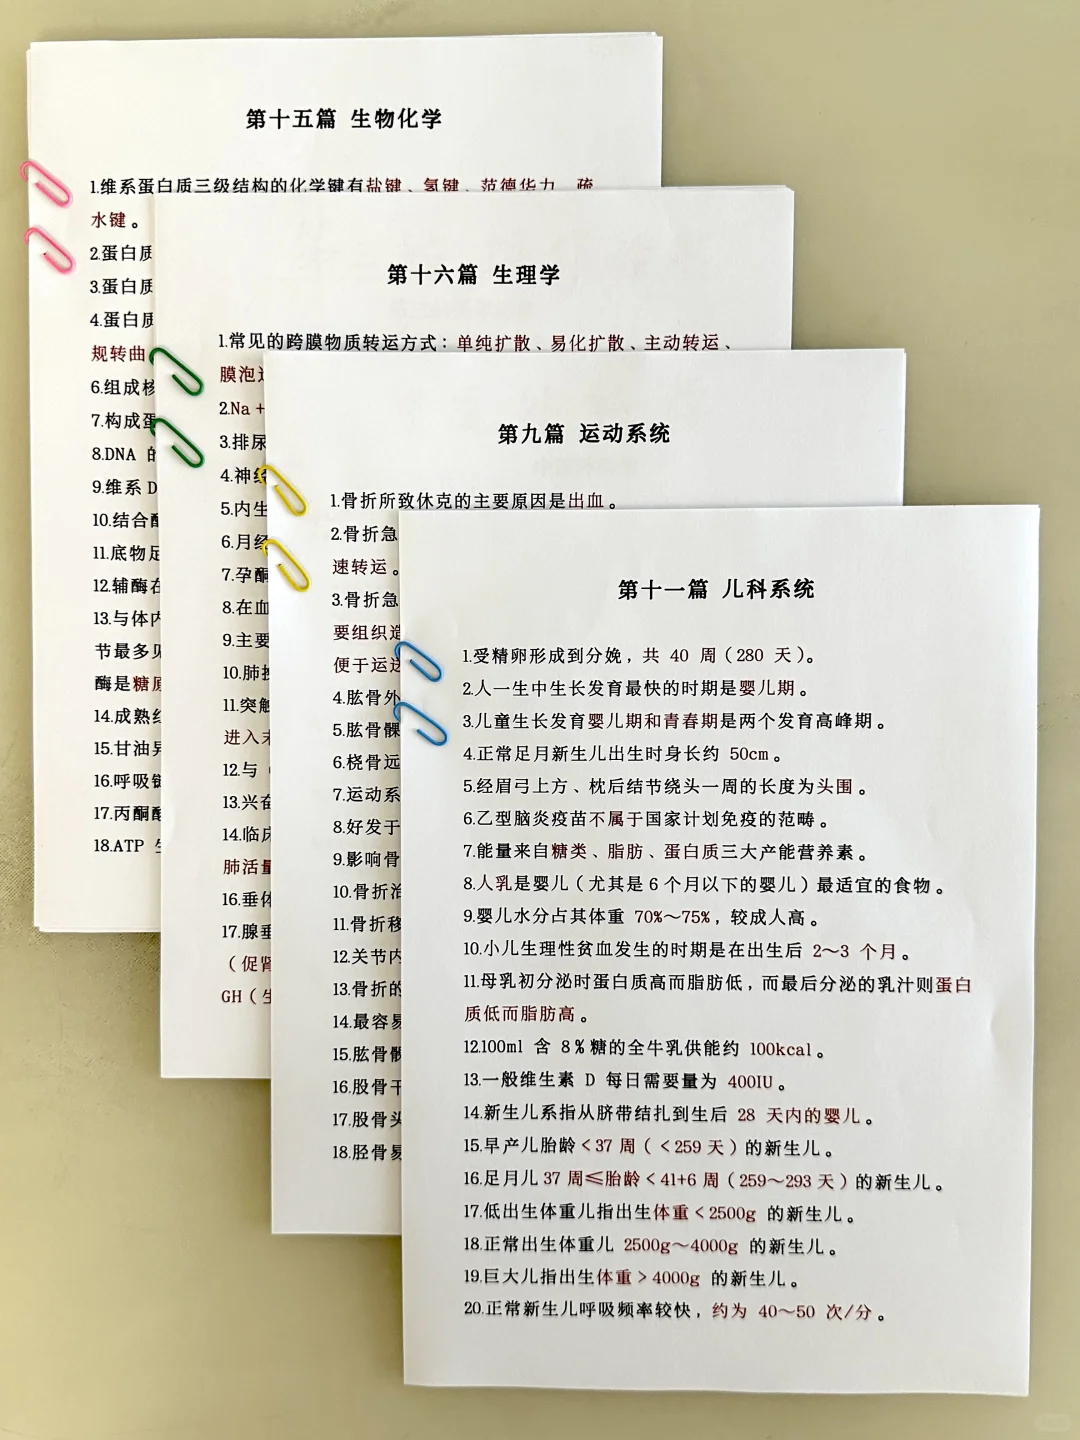 第十五篇 生物化学
1.维系蛋白质三级结构的化学键有盐键、氢键、范德华力、疏
水键。
2.蛋白质
3.蛋白质
4.蛋白质
规转曲
6.组成核
7.构成蛋
8.DNA 的
9.维系 D
10.结合酶
11.底物足
12.辅酶在
13.与体内
节最多见
酶是糖原
14.成熟红
15.甘油异
16.呼吸链
17.丙酮酸
18.ATP 生
第十六篇 生理学
1.常见的跨膜物质转运方式：单纯扩散、易化扩散、主动转运、
膜泡运
2.Na+
3.排尿
4.神经
5.内生
6.月经
7.孕酮
8.在血
9.主要
10.肺换
11.突触
进入末
12.与（
13.兴奋
14.临床
肺活量
16.垂体
17.腺垂
（促肾
GH（生
第九篇 运动系统
1.骨折所致休克的主要原因是出血。
2.骨折急
速转运。
3.骨折急
要组织造
便于运送
4.肱骨外
5.肱骨髁
6.桡骨远
7.运动系
8.好发于
9.影响骨
10.骨折治
11.骨折移
12.关节内
13.骨折的
14.最容易
15.肱骨髁
16.股骨干
17.股骨头
18.胫骨易
第十一篇 儿科系统
1.受精卵形成到分娩，共 40 周（280 天）。
2.人一生中生长发育最快的时期是婴儿期。
3.儿童生长发育婴儿期和青春期是两个发育高峰期。
4.正常足月新生儿出生时身长约 50cm。
5.经眉弓上方、枕后结节绕头一周的长度为头围。
6.乙型脑炎疫苗不属于国家计划免疫的范畴。
7.能量来自糖类、脂肪、蛋白质三大产能营养素。
8.人乳是婴儿（尤其是 6 个月以下的婴儿）最适宜的食物。
9.婴儿水分占其体重 70%～75%，较成人高。
10.小儿生理性贫血发生的时期是在出生后 2～3 个月。
11.母乳初分泌时蛋白质高而脂肪低，而最后分泌的乳汁则蛋白
质低而脂肪高。
12.100ml 含 8%糖的全牛乳供能约 100kcal。
13.一般维生素 D 每日需要量为 400IU。
14.新生儿系指从脐带结扎到生后 28 天内的婴儿。
15.早产儿胎龄<37 周（<259 天）的新生儿。
16.足月儿 37 周≤胎龄<41+6 周（259～293 天）的新生儿。
17.低出生体重儿指出生体重<2500g 的新生儿。
18.正常出生体重儿 2500g～4000g 的新生儿。
19.巨大儿指出生体重>4000g 的新生儿。
20.正常新生儿呼吸频率较快，约为 40～50 次/分。